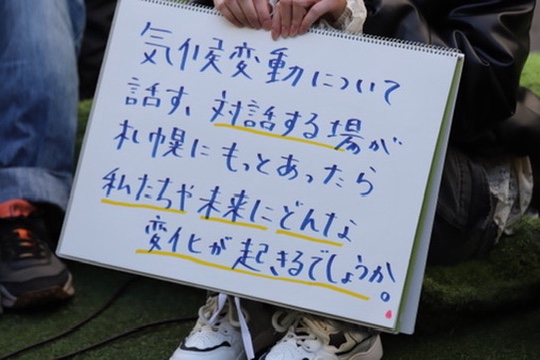 気候変動について
話す、対話する場が
札幌にもっとあったら
私たちや未来にどんな
変化が起きるでしょうか。